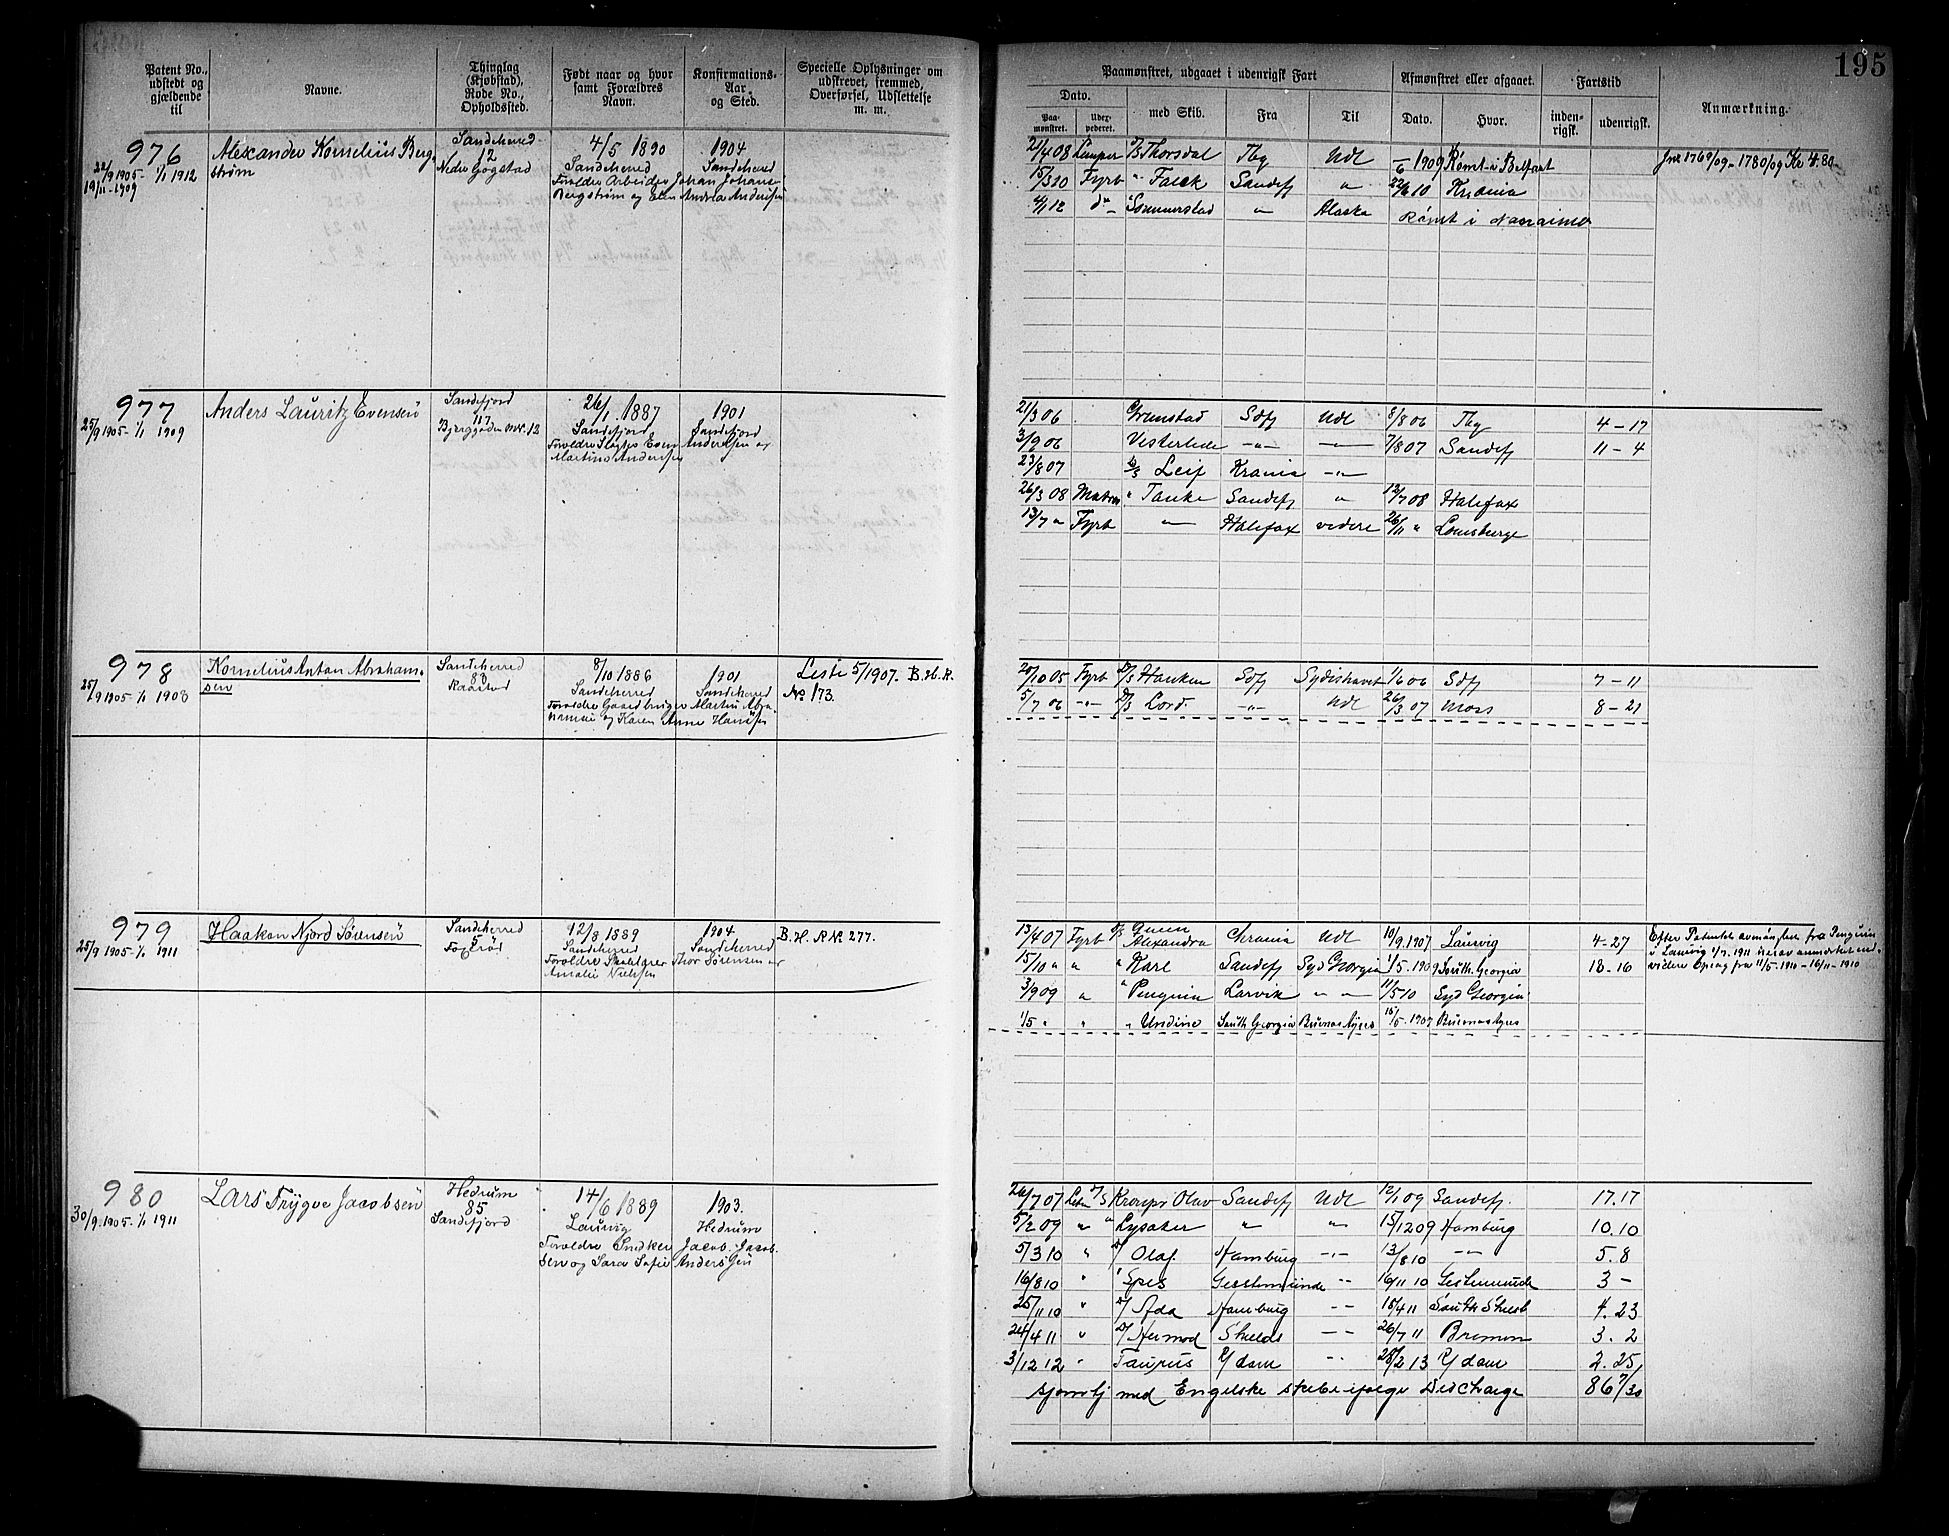 195
Patent No., udstedt og gjældende til
Navne.
Thinglag (Kjøbstad), Rode No., Opholdssted.
Født naar og hvor samt Forældres Navn.
Konfirmations-Aar og Sted.
Specielle Oplysninger om udskrevet, fremmed, Overførsel, Udslettelse m. m.
Paamønstret, udgaaet i udenrigsk Fart
Afmønstret eller afgaaet.
Fartstid
Anmærkning.
Dato.
Paa-mønstret.
Uder-pederet.
med Skib.
Fra
Til
Dato.
Hvor.
inden-rigsk.
udenrigsk.
976
22/9 1905 - 1/1 1912
19/11 - 1909
Alexander Kornelius Berg
strøm
Sandeherred
12
Nedre Gogstad
4/5 1890
Sandeherred
Forældre Arbeider Johan Johan
Bergstrøm og Elen Andrea Andersen
1904
Sandeherred
21/4 08 Lemper D/S Thorsdal Tbg Udl 6 1909 Rømt i Belfast
Jnr 1769/09 - 1780/09 Kr 4.80
15/3 10 Fyrb " Falck Sandefj " 22/6 10 Krania
4/1 12 do Sommerstad " Alaska Rømt i Nanaimo
977
25/9 1905 - 1/1 1909
Anders Lauritz Evensen
Sandefjord
117
Bjerggaden No. 12
26/1 1887
Sandefjord
Forældre Slagter Even Andersen og
Martine Andersen
1901
Sandefjord
21/3 06 Grimstad Sdfj Udl 8/8 06 Tbg 4 - 17
3/9 06 Vesterlede -"- -"- 7/8 07 Sandefj 11 - 4
23/8 07 D/S Leif Krania -"-
26/3 08 Matros " Tanke Sandefj " 12/7 08 Halifax
13/7 " Fyrb -"- Halifax videre 26/11 " Louisburge
978
25/9 1905 - 1/1 1908
Kornelius Anton Abraham-
sen
Sandeherred
88
Raastad
8/10 1886
Sandeherred
Forældre Gaardbruger Martin Abra-
hamsen og Karen Anne Hansen
1901
Sandeherred
Liste 5/1907. B. H. R.
No 173.
20/10 05 Fyrb D/S Hauken Sdfj Sydishavet 1/6 06 Sdfj 7 - 11
5/7 06 -"- D/S Lord -"- Udl 26/3 07 Moss 8 - 21
979
25/9 1905 - 1/1 1911
Haakon Njord Sørensen
Sandeherred
5
Fogserød
12/8 1889
Sandeherred
Forældre Thor Sørensen og
Amalie Nielsen
1904
Sandeherred
B. H. R No 277.
13/4 07 Fyrb D/S Queen Alexandra Chrania Udl 10/9 1907 Laurvig 4 - 27
15/10 " " " Karl Sandefj Syd Georgia 1/5 1909 South Georgia 18 - 16
3/9 09 " " Penguin Larvik " " 11/5 10 Syd Georgia
1/5 " " " Undine South Georgia Buenos Ayres 15/5 1909 Buenos Ayres
Efter Patentet avmønstret fra Penguin
i Laurvig 1/7. 1911
videre Opsag fra 11/5 - 1910 - 16/11 - 1910
980
30/9 1905 - 1/1 1911
Lars Trygve Jacobsen
Hedrum
85
Sandefjord
14/6 1889
Laurvig
Forældre Snedker Jacob Jacob-
sen og Sara Sofie Andersen
1903.
Hedrum
26/7 07 Let D/S Kronpr Olav Sandefj Udl 12/1 09 Sandefj. 17.17
5/2 09 " " Lysaker " " 15/12 09 Hamburg 10.10
5/3 10 " D/ Olaf Hamburg -"- 13/8 10 -"- 5.8
16/8 10 " Geestemünde -- 16/11 10 Gestemunde 3 -
25/11 10 " D/ Ada Hamburg -- 18/4 11 South Shields 4.23
24/4 11 " D/ Hermod Shields -- 26/7 11 Bremen 3.2
3/12 12 " Taurus R/dam -- 28/2 13 R/dam 2.25
med Engelske skibe ifølge Discharge 86 7/30